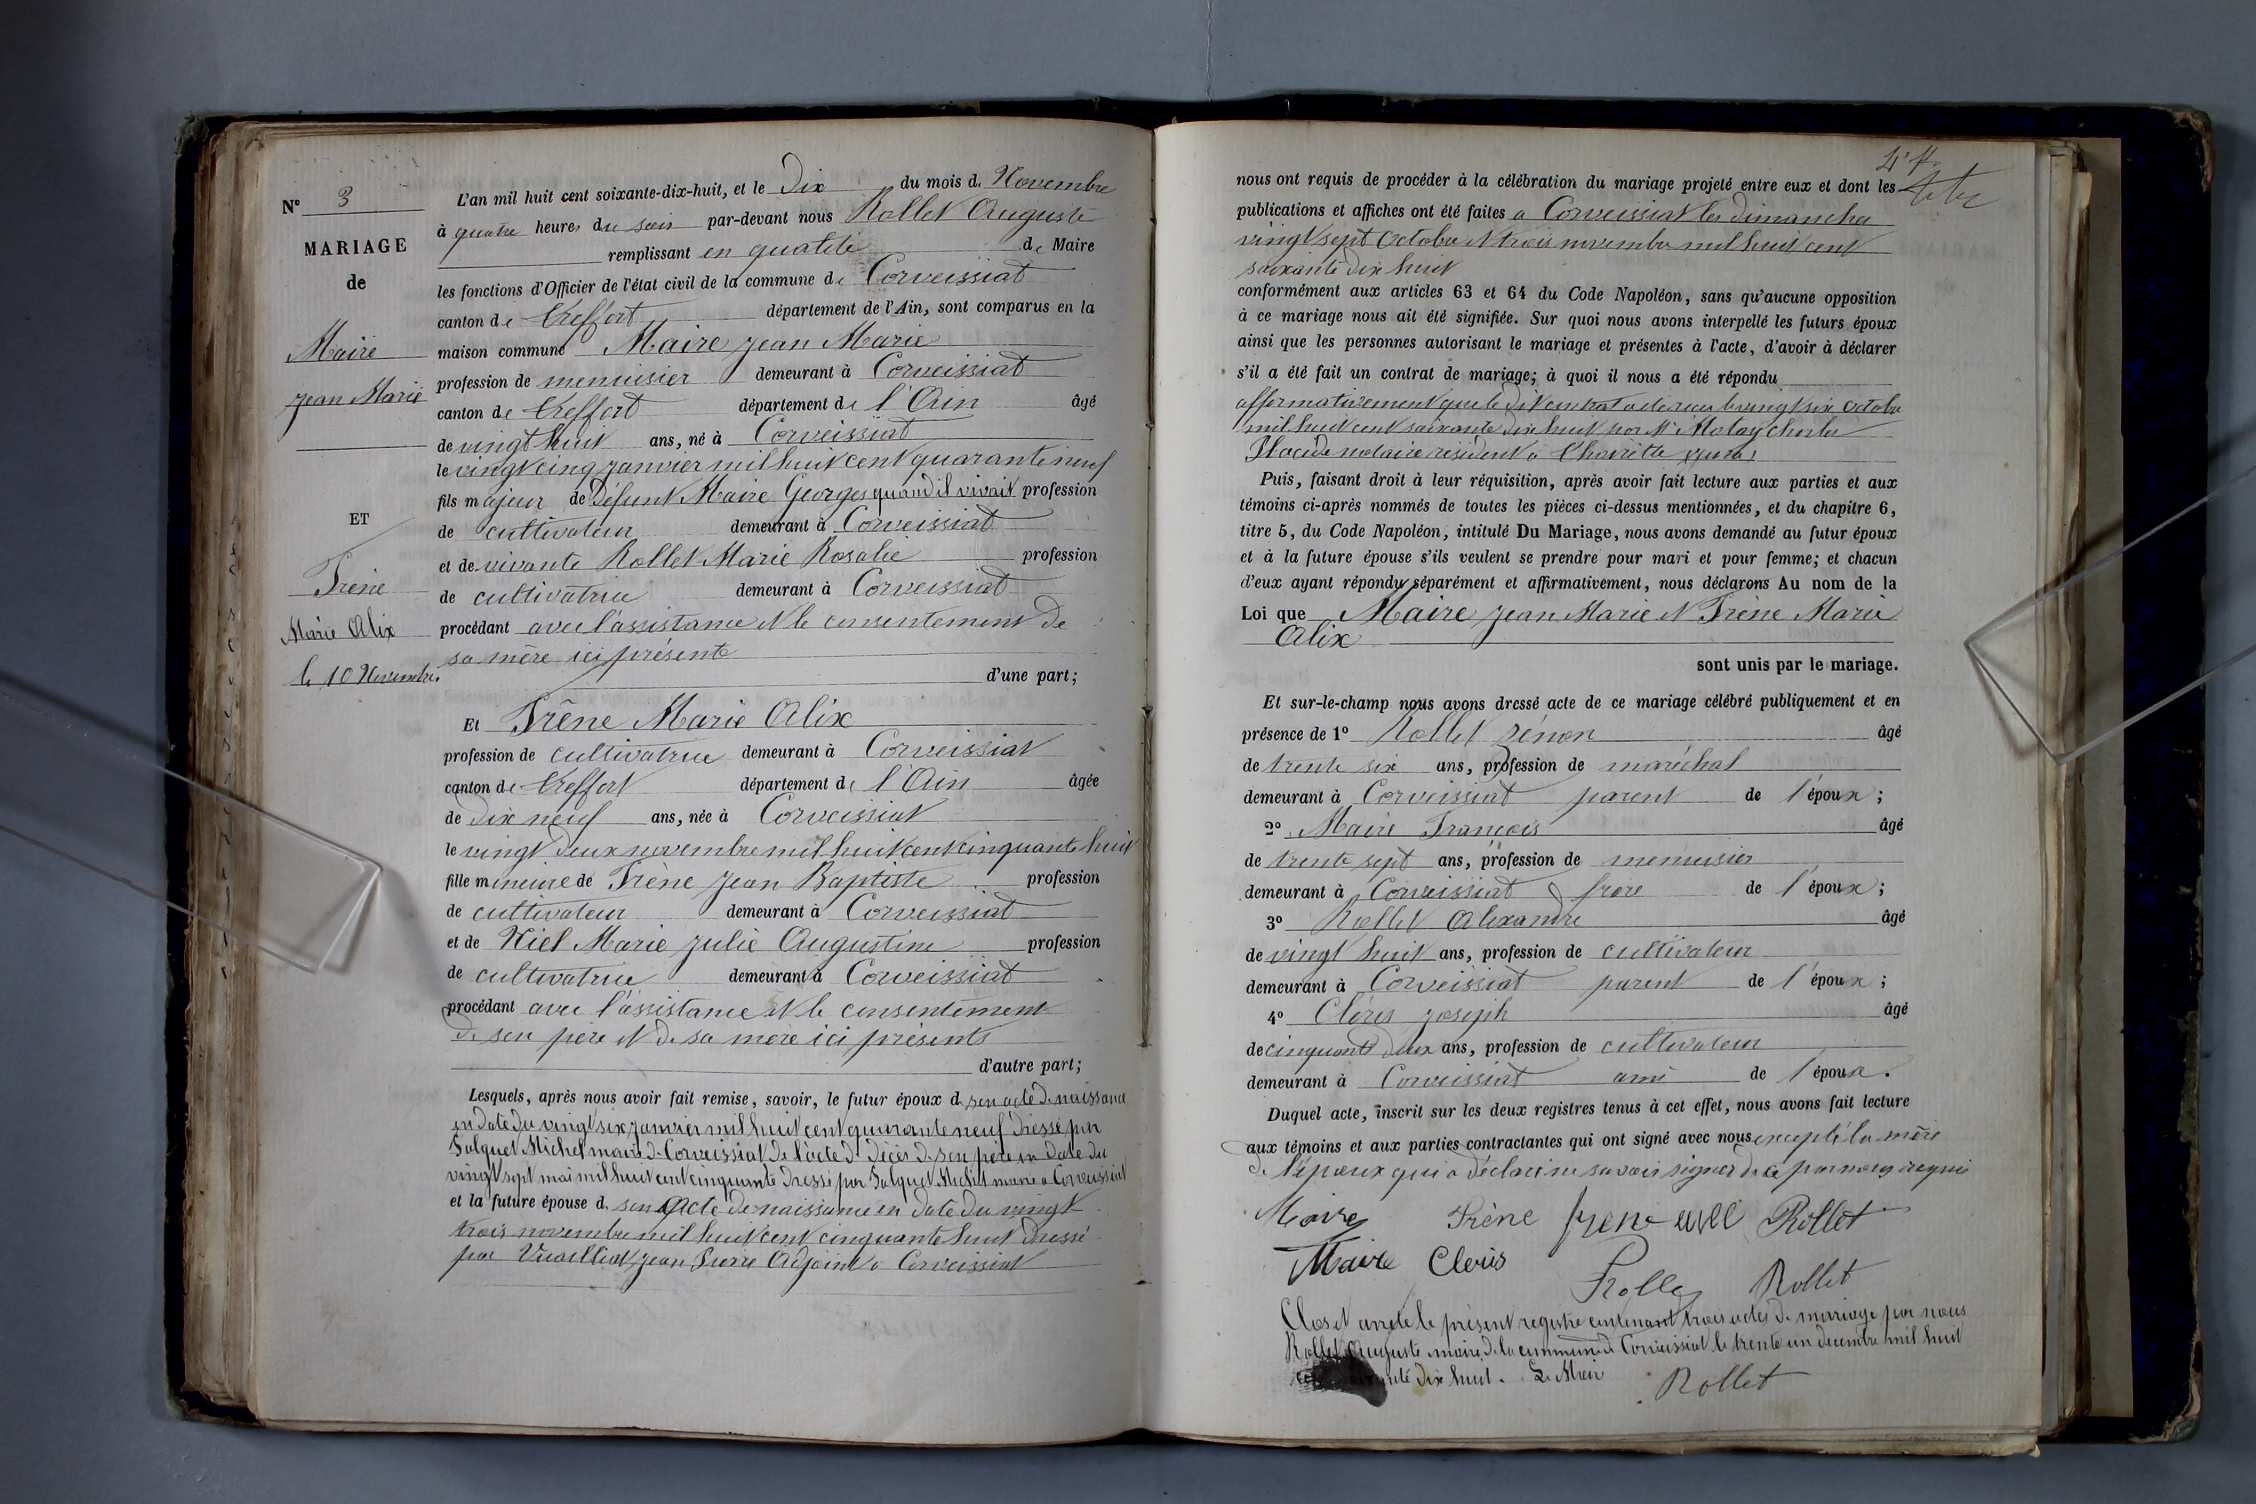 N° 3
MARIAGE
de
Maire
Jean Marie
ET
Frène
Marie Alix
le 10 Novembre.
L'an mil huit cent soixante-dix-huit, et le Dix du mois de Novembre
à quatre heures du soir par-devant nous Rollet Auguste
remplissant en qualité de Maire
les fonctions d'Officier de l'état civil de la commune de Corveissiat
canton de Treffort département de l'Ain, sont comparus en la
maison commune Maire Jean Marie
profession de menuisier demeurant à Corveissiat
canton de Treffort département de l'Ain âgé
de vingt huit ans, né à Corveissiat
le vingt cinq janvier mil huit cent quarante neuf
fils majeur de défunt Maire Georges quand il vivait profession
de cultivateur demeurant à Corveissiat
et de vivante Rollet Marie Rosalie profession
de cultivatrice demeurant à Corveissiat
procédant avec l'assistance et le consentement de
sa mère ici présente
d'une part;
Et Frène Marie Alix
profession de cultivatrice demeurant à Corveissiat
canton de Treffort département de l'Ain âgée
de dix neuf ans, née à Corveissiat
le vingt deux novembre mil huit cent cinquante huit
fille mineure de Frène Jean Baptiste profession
de cultivateur demeurant à Corveissiat
et de Niel Marie Julie Augustine profession
de cultivatrice demeurant à Corveissiat
procédant avec l'assistance et le consentement
de son père et de sa mère ici présents
d'autre part;
Lesquels, après nous avoir fait remise, savoir, le futur époux de son acte de naissance
en date du vingt six janvier mil huit cent quarante neuf dressé par
Michel maire de Corveissiat de l'acte de décès de son père en date du
vingt sept mai mil huit cent cinquante dressé par Michel maire a Corveissiat
et la future épouse de son acte de naissance en date du vingt
trois novembre mil huit cent cinquante huit dressé
par Vuaillat Jean Pierre Adjoint a Corveissiat
nous ont requis de procéder à la célébration du mariage projeté entre eux et dont les
publications et affiches ont été faites a Corveissiat les dimanches
vingt sept octobre et trois novembre mil huit cent
soixante dix huit
conformément aux articles 63 et 64 du Code Napoléon, sans qu'aucune opposition
à ce mariage nous ait été signifiée. Sur quoi nous avons interpellé les futurs époux
ainsi que les personnes autorisant le mariage et présentes à l'acte, d'avoir à déclarer
s'il a été fait un contrat de mariage; à quoi il nous a été répondu
affirmativement que le dit contrat a été reçu le vingt six octobre
mil huit cent soixante dix huit par Me Charles
Placide notaire résident a
Puis, faisant droit à leur réquisition, après avoir fait lecture aux parties et aux
témoins ci-après nommés de toutes les pièces ci-dessus mentionnées, et du chapitre 6,
titre 5, du Code Napoléon, intitulé Du Mariage, nous avons demandé au futur époux
et à la future épouse s'ils veulent se prendre pour mari et pour femme; et chacun
d'eux ayant répondu séparément et affirmativement, nous déclarons Au nom de la
Loi que Maire Jean Marie et Frène Marie
Alix
sont unis par le mariage.
Et sur-le-champ nous avons dressé acte de ce mariage célébré publiquement et en
présence de 1° Rollet Zénon âgé
de trente six ans, profession de maréchal
demeurant à Corveissiat parent de l'époux;
2° Maire François âgé
de trente sept ans, profession de menuisier
demeurant à Corveissiat frère de l'époux;
3° Rollet Alexandre âgé
de vingt huit ans, profession de cultivateur
demeurant à Corveissiat parent de l'époux;
4° Clèris Joseph âgé
de cinquante deux ans, profession de cultivateur
demeurant à Corveissiat ami de l'époux.
Duquel acte, inscrit sur les deux registres tenus à cet effet, nous avons fait lecture
aux témoins et aux parties contractantes qui ont signé avec nous excepté la mère
de l'époux qui a déclaré ne savoir signer de ce par nous requis
Maire Frène Rollet
Maire Cleris
Rollet
Clos et arrêté le présent registre contenant trois actes de mariage par nous
Rollet Auguste maire de la commune de Corveissiat le trente un décembre mil huit
dix huit. Le Maire
Rollet